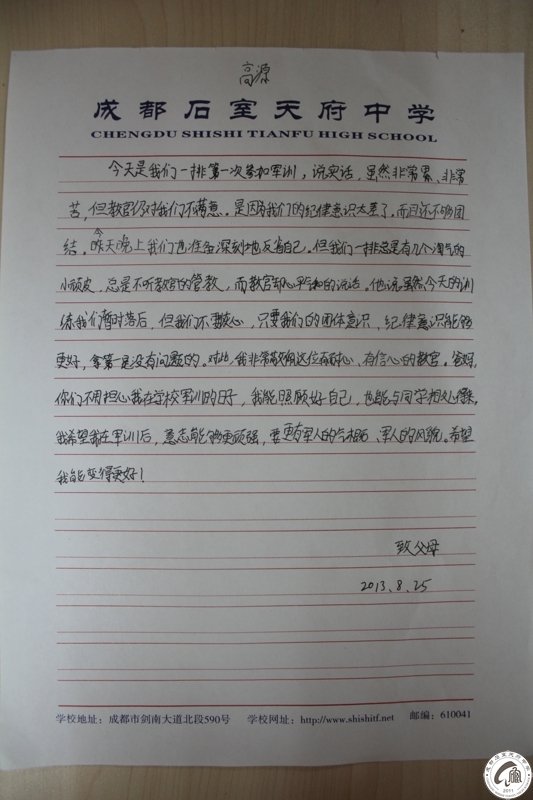 高源
成都石室天府中学
CHENGDU SHISHI TIANFU HIGH SCHOOL
今天是我们一排第一次参加军训，说实话，虽然非常累、非常
苦，但教官仍对我们不满意。是因为我们的纪律意识太差了。而且还不够团
结。昨天晚上我们也准备深刻地反省自己。但我们一排总是有几个淘气的
今
小顽皮，总是不听教官的管教，而教官却心平气和的说话。他说虽然今天的训
练我们暂时落后，但我们不要灰心，只要我们的团体意识，纪律意识能够
更好，拿第一是没有问题的。对此，我非常敬佩这位有耐心、有信心的教官。爸妈，
你们不用担心我在学校军训的日子，我能照顾好自己，也能与同学相处得来。
我希望我在军训后，意志能够更顽强，要更有军人的气相、军人的风貌。希望
我能变得更好！
致父母
2013.8.25
学校地址：成都市剑南大道北段590号 学校网址：http://www.shishitf.net 邮编：610041
2011